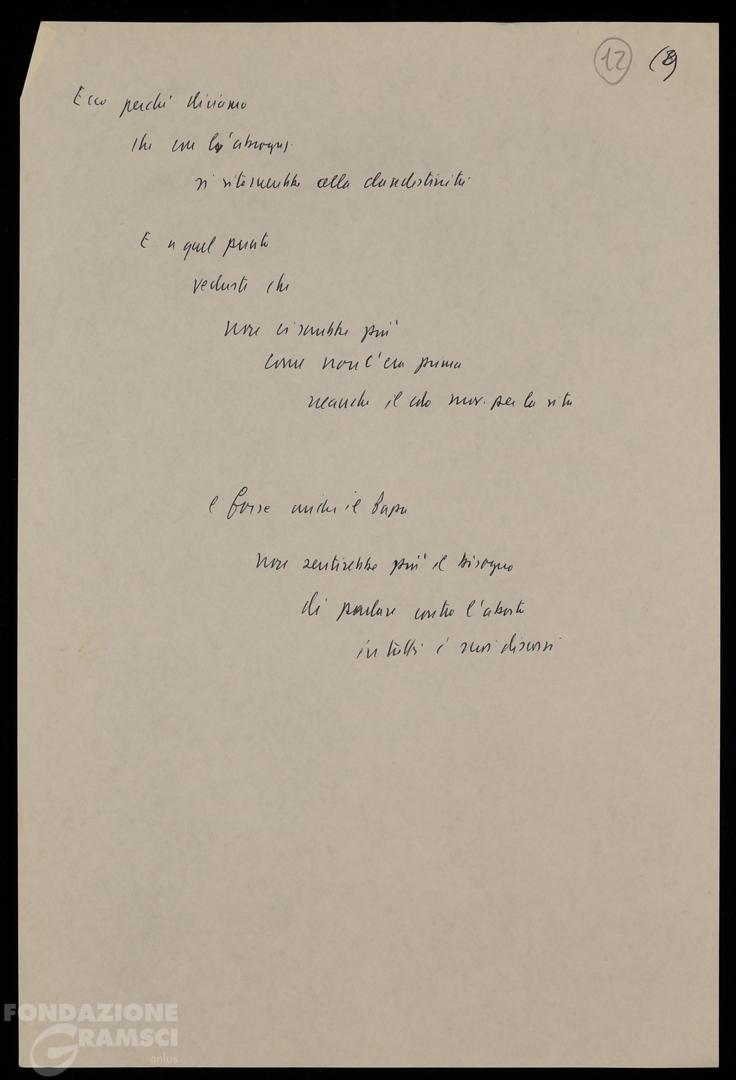 12 (8)
Ecco perché diciamo
che con l'abrogaz.
si ritornerebbe alla clandestinità
E a quel punto
vedreste che
non ci sarebbe più
come non c'era prima
neanche il cdo mov. per la vita
e forse anche il Papa
non sentirebbe più il bisogno
di parlare contro l'aborto
in tutti i suoi discorsi
FONDAZIONE
GRAMSCI
onlus